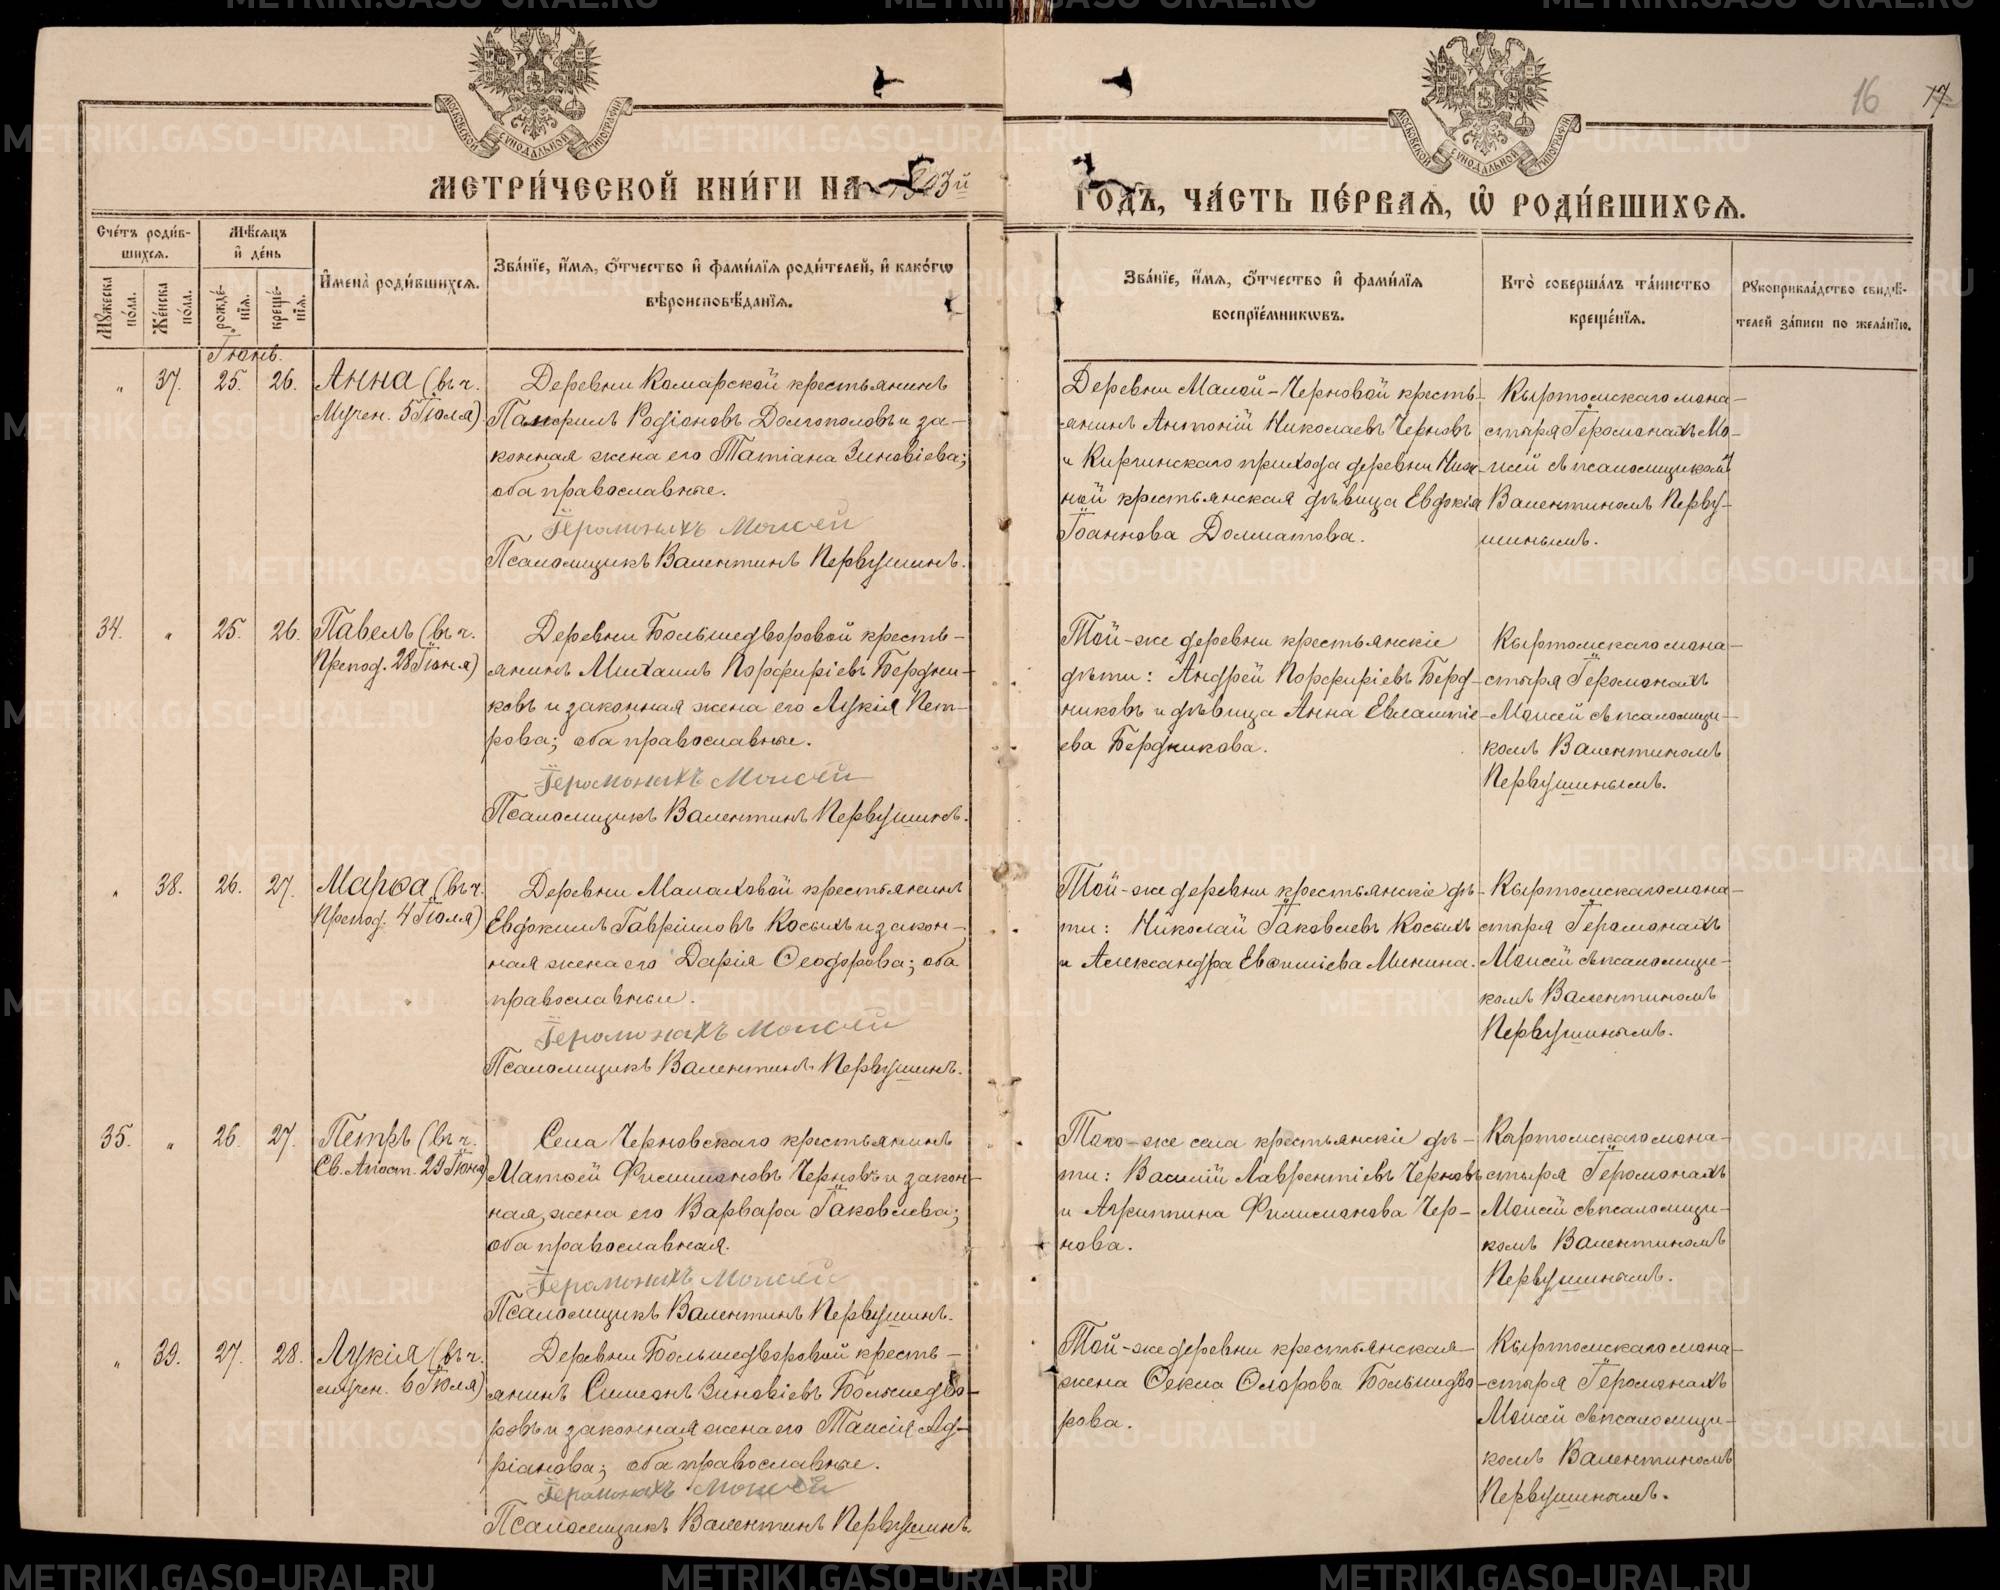 16 17
МОСКОВСКОЙ СѴНОДАЛЬНОЙ ТИПОГРАФІИ
МОСКОВСКОЙ СѴНОДАЛЬНОЙ ТИПОГРАФІИ
МЕТРИ́ЧЕСКОЙ КНИ́ГИ НА 1903й
ГОДЪ, ЧА́СТЬ ПЕ́РВАЯ, Ѡ҆ РОДИ́ВШИХСЯ.
Сче́тъ роди́в-
шихся.
Мѣ́сяцъ
и҆ де́нь
Му́жеска по́ла.
Же́нска по́ла.
рожде́-нїя.
креще́-нїя.
И҆мена̀ роди́вшихся.
Зва́нїе, и҆́мя, ѻ҆́тчество и҆ фами́лїя роди́телей, и҆ како́гѡ
вѣроисповѣ́данїя.
Зва́нїе, и҆́мя, ѻ҆́тчество и҆ фами́лїя
воспрїе́мникѡвъ.
Кто̀ соверша́лъ та́инство
креще́нїя.
Рукоприкла́дство свидѣ́-
телей за́писи по жела́нїю.
Іюнь.
„ 37. 25. 26. Анна (въ ч.
Мучен. 5 Іюля)
Деревни Комарской крестьянинъ
Памфилъ Родіоновъ Долгополовъ и за-
конная жена его Татіана Зиновіева;
оба православные.
Іеромонахъ Моисей
Псаломщикъ Валентинъ Первушинъ.
Деревни Малой-Черновой кресть-
янинъ Антоній Николаевъ Черновъ
и Киргинскаго прихода деревни Ниж-
ней крестьянская дѣвица Евдокія
Іоаннова Долматова.
Кыртомскаго мона-
стыря Іеромонахъ Мо-
исей съ псаломщикомъ
Валентиномъ Перву-
шинымъ.
34. „ 25. 26. Павелъ (въ ч.
Препод. 28 Іюня)
Деревни Большедворовой кресть-
янинъ Михаилъ Порфиріевъ Бердни-
ковъ и законная жена его Лукія Пет-
рова; оба православные.
Іеромонахъ Моисей
Псаломщикъ Валентинъ Первушинъ.
Той-же деревни крестьянскіе
дѣти: Андрей Порфиріевъ Берд-
никовъ и дѣвица Анна Евлампіе-
ева Бердникова.
Кыртомскаго мона-
стыря Іеромонахъ
Моисей съ псаломщи-
комъ Валентиномъ
Первушинымъ.
„ 38. 26. 27. Марѳа (въ ч.
Препод. 4 Іюля)
Деревни Малаховой крестьянинъ
Евдокимъ Гавріиловъ Косыхъ и закон-
ная жена его Дарія Ѳеодорова; оба
православные.
Іеромонахъ Моисей
Псаломщикъ Валентинъ Первушинъ.
Той-же деревни крестьянскіе дѣ-
ти: Николай Іаковлевъ Косыхъ
и Александра Евѳиміева Минина.
Кыртомскаго мона-
стыря Іеромонахъ
Моисей съ псаломщи-
комъ Валентиномъ
Первушинымъ.
35. „ 26. 27. Петръ (въ ч.
Св. Апост. 29 Іюня)
Села Черновскаго крестьянинъ
Матѳей Филимоновъ Черновъ и закон-
ная жена его Варвара Іаковлева;
оба православная.
Іеромонахъ Моисей
Псаломщикъ Валентинъ Первушинъ.
Того-же села крестьянскіе дѣ-
ти: Василій Лаврентіевъ Черновъ
и Агриппина Филимонова Чер-
нова.
Кыртомскаго мона-
стыря Іеромонахъ
Моисей съ псаломщи-
комъ Валентиномъ
Первушинымъ.
„ 39. 27. 28. Лукія (въ ч.
мучен. 6 Іюля)
Деревни Большедворовой кресть-
янинъ Симеонъ Зиновіевъ Большедво-
ровъ и законная жена его Таисія Ад-
ріанова; оба православные.
Іеромонахъ Моисей
Псаломщикъ Валентинъ Первушинъ.
Той-же деревни крестьянская
жена Ѳекла Флорова Большедво-
рова.
Кыртомскаго мона-
стыря Іеромонахъ
Моисей съ псаломщи-
комъ Валентиномъ
Первушинымъ.
METRIKI.GASO-URAL.RU